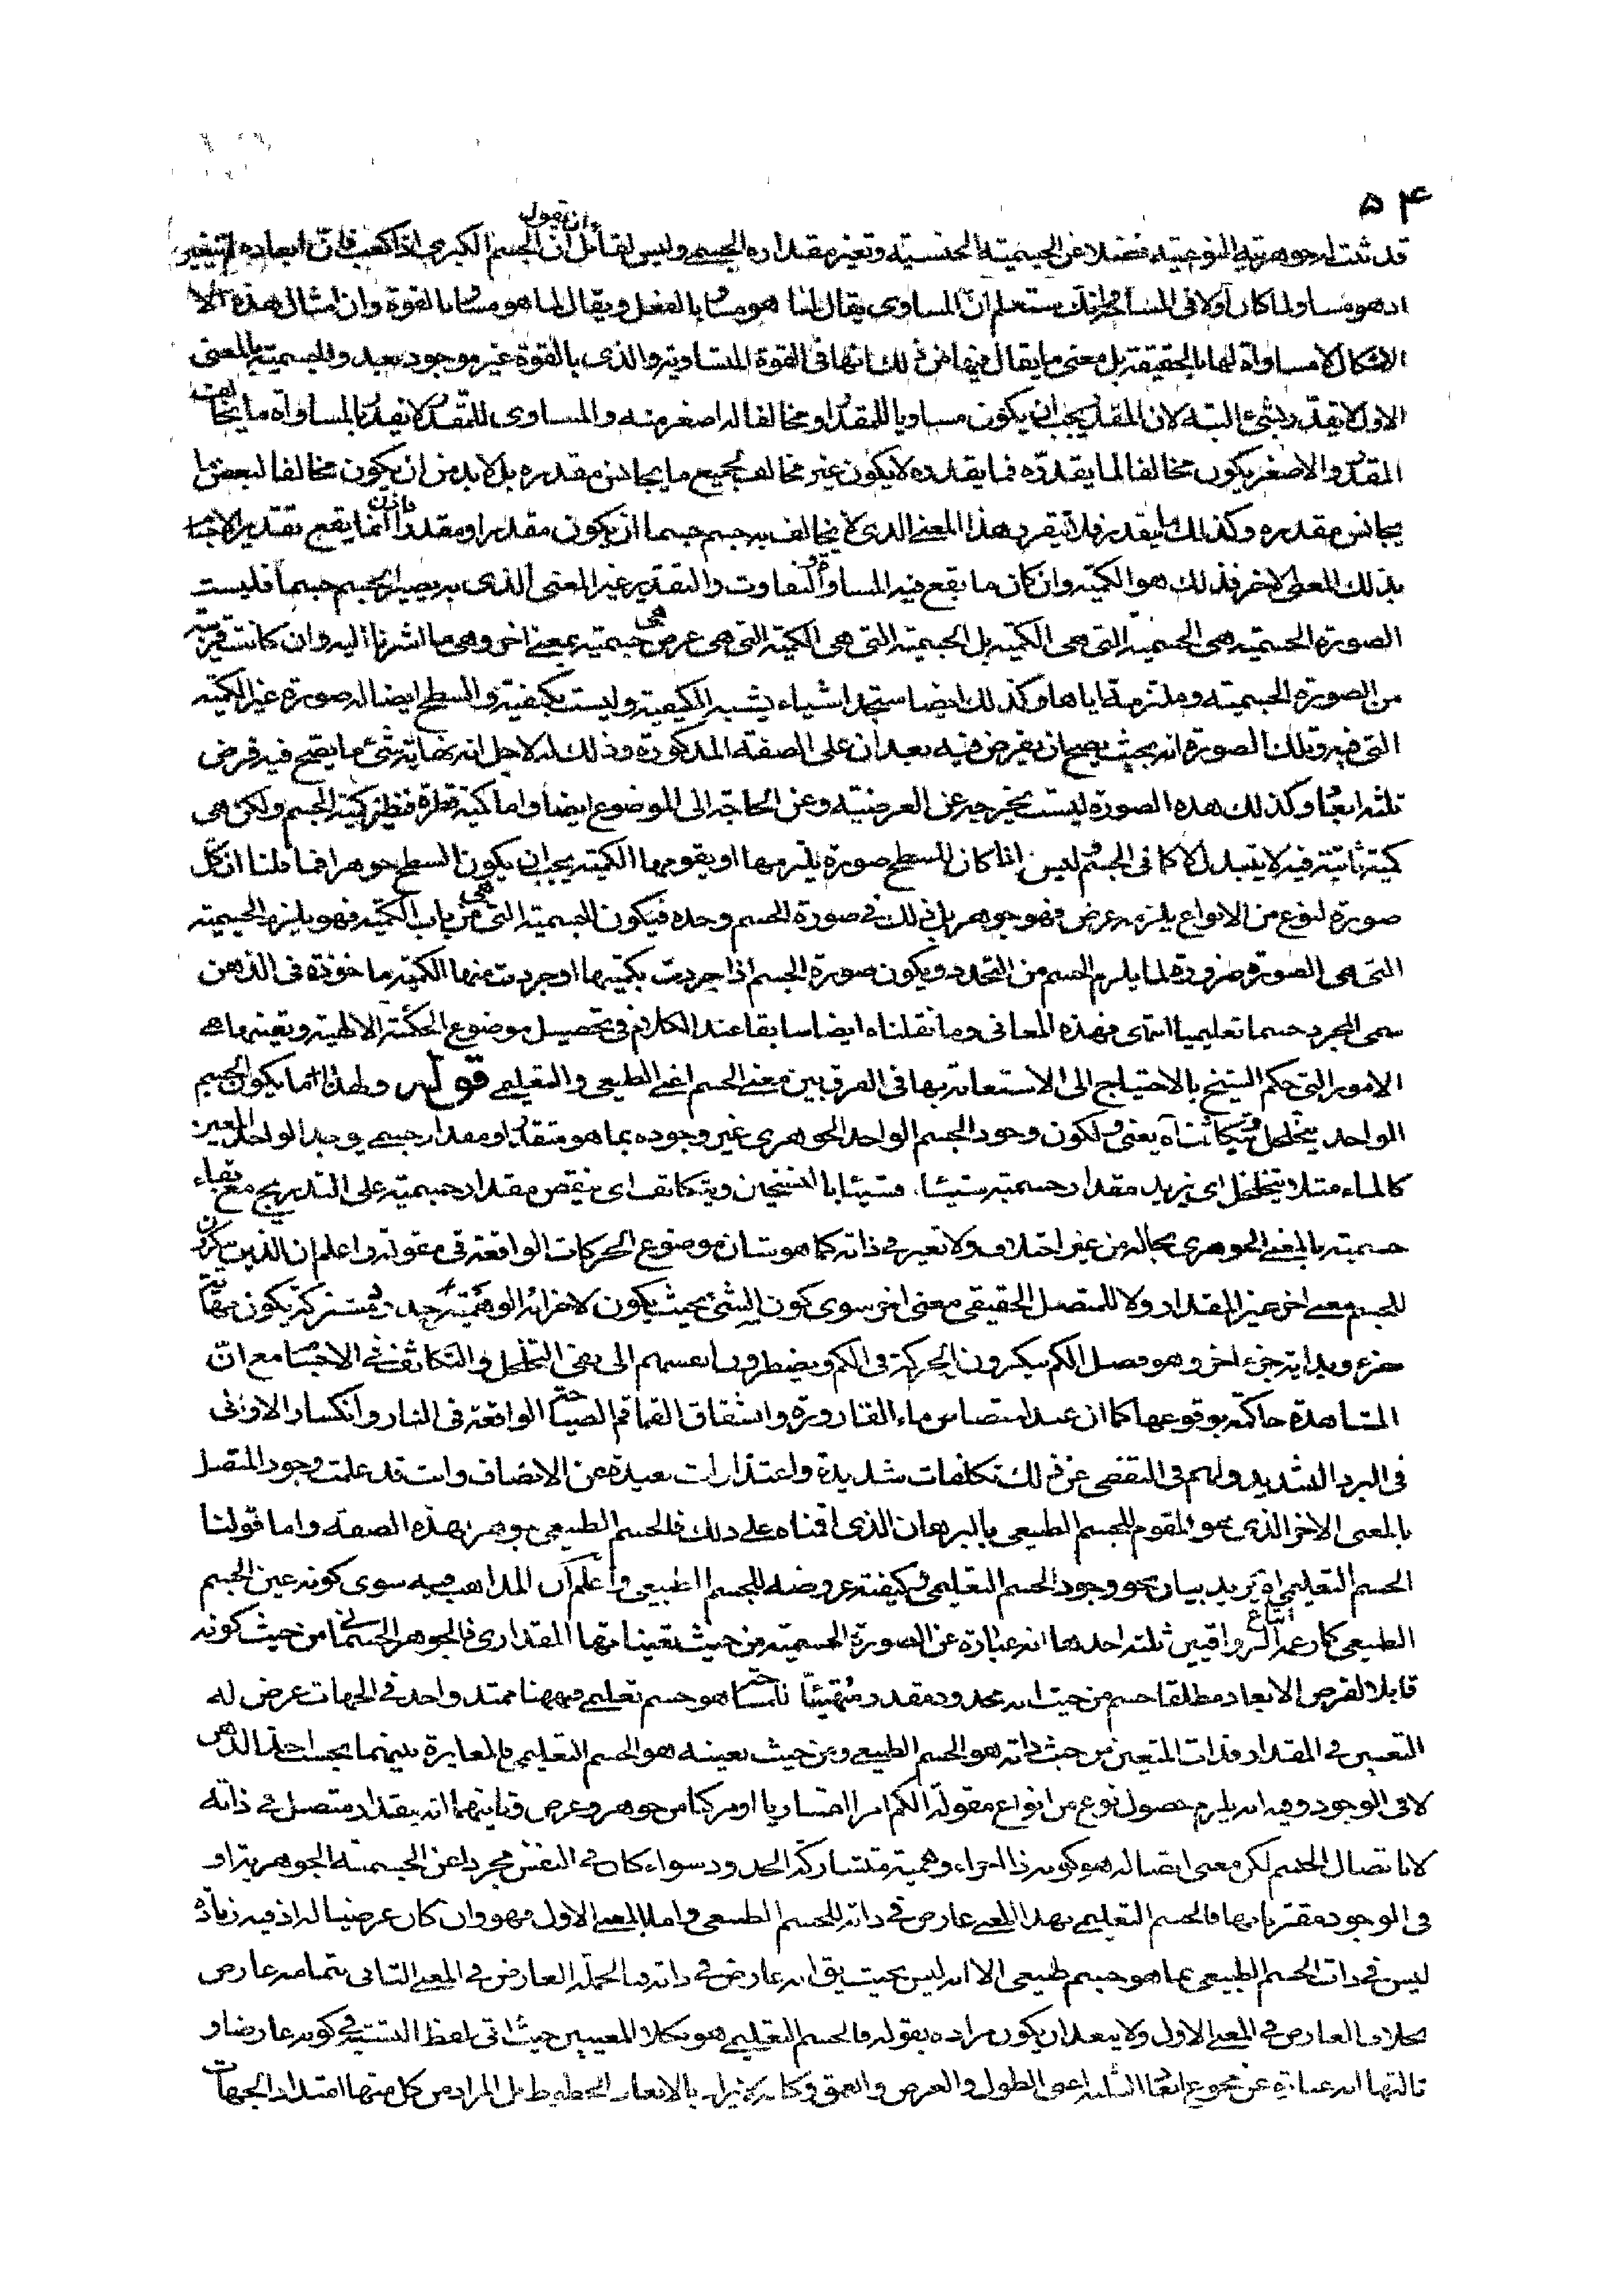 ۵۴
قد ثبت له جوهريته النوعية فضلا عن الجسمية الجنسية وتغير مقداره الجسمي وليس لقائل ان يقول ان الجسم الكبرى اذا كعب فان ابعاده لم يتغير
اذ هو مساو لما كان اولا في المساحة فانك ستعلم ان المساوى يقال لما هو مسا بالفعل ويقال لما هو مسا بالقوة وان امثال هذه الا
الاشكال لا مساواة لها بالحقيقة بل معنى ما يقال فيها من ذلك انها في القوة المتساوية والذى بالقوة غير موجود بعد والجسمية بالمعنى
الاول لا يقدر بشئ البتة لان المقدر يجب ان يكون مساويا للمقدر او مخالفا له اصغر منه والمساوى للمقدر لا يقدر بالمساواة ما يخالف
المقدر والاصغر يكون مخالفا لما يقدره فما يقدره لا يكون غير مخالف لجميع ما يجانس مقدره بل لا بد من ان يكون مخالفا لبعض ما
يجانس مقدره وكذلك ما يقدر به فلا يتقرر بهذا المعنى الذى لا يخالف به جسم جسما ان يكون مقدرا او مقدرا فاذن انما يقع تقدير الاجسا
بذلك المعنى الاخر فذلك هو الكمية وان كان ما يقع فيه المساواة والتفاوت والتقدير غير المعنى الذى به يصير الجسم جسما فليست
الصورة الجسمية هى الجسمية التى هى الكمية بل الجسمية التى هى الكمية التى هى عرض هى جسمية بمعنى اخر وهى ما اشرنا اليه وان كانت قريبة
من الصورة الجسمية وملتزمة اياها وكذلك ايضا ستجد اشياء يشبه الكيفية وليست بكيفية والسطح ايضا له صورة غير الكمية
التى فيه وتلك الصورة انه بحيث يصح ان يفرض فيه بعدان على الصفة المذكورة وذلك له لاجل انه نهاية شئ ما يصح فيه فرض
ثلثة ابعا وكذلك هذه الصورة ليست يخرجه عن العرضية وعن الحاجة الى الموضوع ايضا واما كمية فنظير كمية الجسم ولكن هى
كمية ثابتة فيه لا يتبدل لا كما في الجسم ليس اذا كان للسطح صورة يلزمها او يقومها الكمية يجب ان يكون السطح جوهرا فما قلنا ان كل
صورة لنوع من الانواع يلزمه عرض فهو جوهر بل ذلك في صورة الجسم وحده فيكون الجسمية التى هى من باب الكمية فهو يلزم الجسمية
التى هى الصورة ضرورة لما يلزم الجسم من التحدد ويكون صورة الجسم اذا جردت بكميتها او جردت منها الكمية ماخوذة في الذهن
سمى المجرد جسما تعليميا انتهى فهذه المعانى وما نقلناه ايضا سابقا عند الكلام في تحصيل موضوع الحكمة الالهية وتعينه ما هى
الامور التى حكم الشيخ بالاحتياج الى الاستعانة بها في الفرق بين معنى الجسم اعنى الطبيعى والتعليمى قوله ولهذا انما يكون الجسم
الواحد يتخلخل ويتكاثف آه يعنى ولكون وجود الجسم الواحد الجوهرى غير وجوده بما هو متقدر او مقدار جسمى يوجد الواحد المعين
كالماء مثلا يتخلخل اى يزيد مقدار جسميته شيئا فشيئا بالتسخين ويتكاثف اى ينقص مقدار جسميته على التدريج مع بقاء
جسميته بالمعنى الجوهرى بحاله من غير اختلاف ولا تغير في ذاته كما هو شان موضوع الحركات الواقعة في مقولة واعلم ان الذين ينكرون
للجسم معنى اخر غير المقدار ولا للمتصل الحقيقى معنى اخر سوى كون الشئ بحيث يكون لاجزائه الوهمية حدود مشتركة يكون نهاية
جزء وبداية جزء اخر وهو فصل الكم ينكرون الحركة في الكم ويضطرون انفسهم الى نفى التخلخل والتكاثف في الاجسا مع ان
المشاهدة حاكمة بوقوعها كما ان عند امتصاص ماء القارورة وانشقاق القماقم الصياحة الواقعة في النار وانكسار الاوانى
في البرد الشديد ولهم في التفصى عن ذلك تكلفات شديدة واعتذارات بعيدة عن الانصاف وانت قد علمت وجود المتصل
بالمعنى الاخر الذى هو المقوم للجسم الطبيعى بالبرهان الذى اقمناه على ذلك فالجسم الطبيعى جوهر بهذه الصفة واما قولنا
الجسم التعليمى آه يريد بيان نحو وجود الجسم التعليمى وكيفية عروضه للجسم الطبيعى واعلم ان المذاهب فيه سوى كونه عين الجسم
الطبيعى كما زعمه اتباع الرواقيين ثلثة احدها انه عبارة عن الصورة الجسمية من حيث تعيناتها المقدارى فالجوهر الجسمانى من حيث كونه
قابلا لفرض الابعاد مطلقا جسم من حيث انه محدود مقدر هو جسم تعليمى فههنا ممتد واحد في الجهات عرض له
التعين في المقدار فذات المتعين من حيث ذاته هو الجسم الطبيعى ومن حيث تعينه هو الجسم التعليمى فالمغايرة بينهما بحسب اخذ الذهن
لا في الوجود وفيه انه يلزم حصول نوع من انواع مقولة الكم امرا اعتباريا او مركبا من جوهر وعرض وثانيهما انه مقدار متصل في ذاته
لا باتصال الجسم لكن معنى اتصاله هو كونه ذا اجزاء وهمية متشاركة الحدود سواء كان في النفس مجردا عن الجسمية الجوهرية او
في الوجود مقترنا بها فالجسم التعليمى بهذا المعنى عارض في ذاته للجسم الطبيعى واما بالمعنى الاول فهو وان كان عرضيا له اذ فيه زيادة
ليس في ذات الجسم الطبيعى بما هو جسم طبيعى الا انه ليس بحيث يق انه عارض في ذاته وبالجملة العارض في المعنى الثانى بتمامه عارض
بخلاف العارض في المعنى الاول ولا يبعد ان يكون مراده بقوله فالجسم التعليمى هو بكلا المعنيين حيث اتى بلفظ التشبيه في كونه عارضا و
ثالثها انه عبارة عن مجموع ابعا الثلثة اعنى الطول والعرض والعمق وكانه لم يرد بالابعاد الخطوط بل المراد من كل منها امتداد الجهات